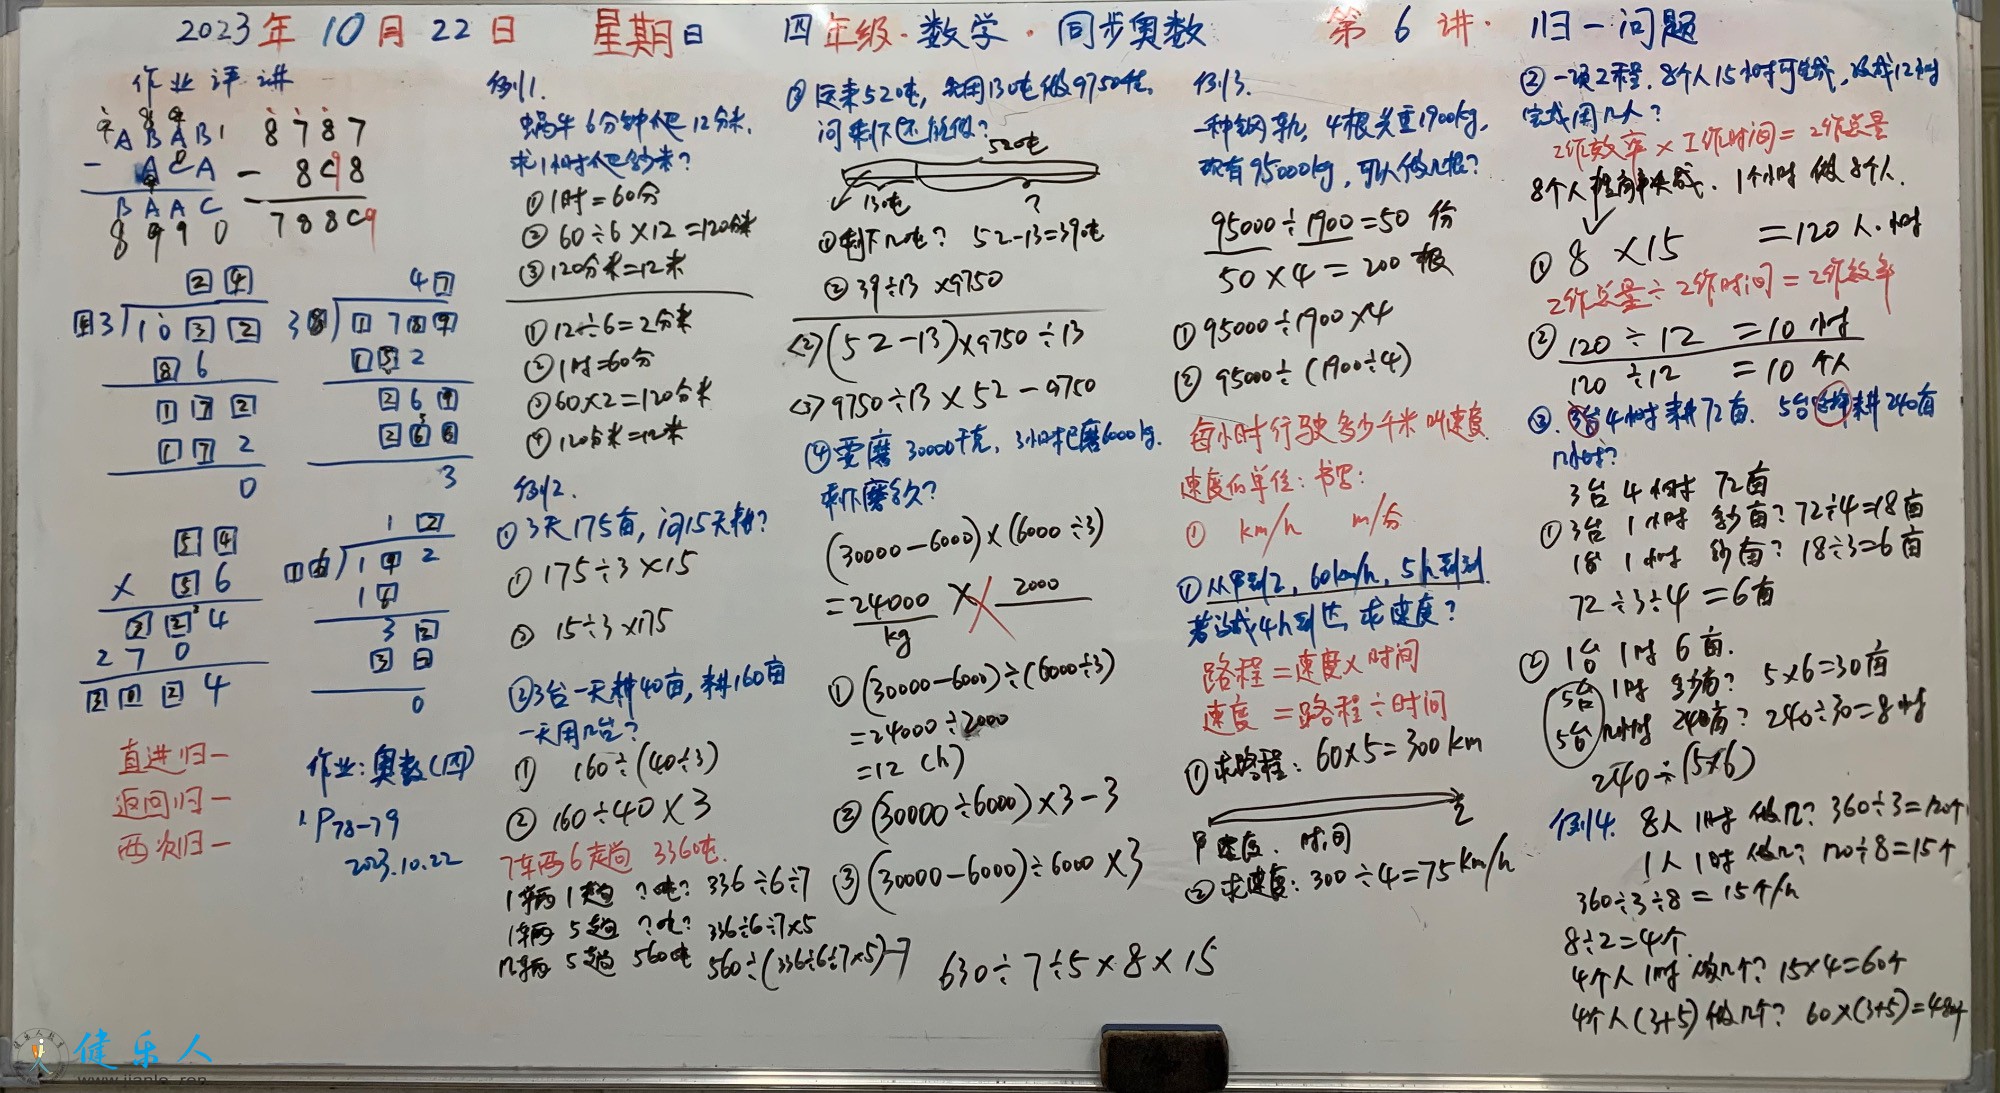 2023年 10月 22日 星期日 四年级·数学·同步奥数 第 6 讲· 归一问题
作业评讲
ABAB
- ACA
BAAC
8990
8787
- 8 9 8
788
2 4
4 3 ) 1 0 3 2
8 6
1 7 2
1 7 2
0
4 7
3 8 ) 1 7 8 9
1 5 2
2 6 9
2 6 6
3
5 4
× 5 6
3 2 4
2 7 0
3 0 2 4
1 2
1 6 ) 1 9 2
1 6
3 2
3 2
0
直进归一
返回归一
两次归一
作业:奥数(四)
P78-79
2023.10.22
例1.
蜗牛6分钟爬12分米,
求1小时爬多少米?
①1时=60分
②60÷6×12=120分米
③120分米=12米
①12÷6=2分米
②1时=60分
③60×2=120分米
④120分米=12米
例2.
①3天175亩,问15天耕?
①175÷3×15
②15÷3×175
②3台一天耕40亩,耕160亩
一天用几台?
① 160÷(40÷3)
②160÷40×3
7车两6趟 336吨.
1辆1趟?吨? 336÷6÷7
1辆5趟?吨? 336÷6÷7×5
几辆5趟 560吨 560÷(336÷6÷7×5)-7
③运来520吨, 先用130吨做9750件,
问剩下还能做?
520吨
130吨 ?
①剩下几吨? 52-13=39吨
②39÷13×9750
<2>(52-13)×9750÷13
<3>9750÷13×52-9750
④要磨30000千克, 3小时已磨6000kg.
剩下磨多久?
(30000-6000)×(6000÷3)
=24000 × 2000
kg
①(30000-6000)÷(6000÷3)
=24000÷2000
=12 (h)
②(30000÷6000)×3-3
③(30000-6000)÷6000×3
630÷7÷5×8×15
例3.
一种钢轨, 4根共重1900kg,
现有95000kg, 可以做几根?
95000÷1900=50 份
50×4=200根
①95000÷1900×4
②95000÷(1900÷4)
每小时行驶多少千米叫速度.
速度的单位:书写:
① km/h m/分
①从甲到乙, 60km/h, 5h到达.
若改成4h到达,求速度?
路程=速度×时间
速度=路程÷时间
①求路程: 60×5=300km
甲 乙
速度. 时间
②求速度: 300÷4=75km/h
②一项工程. 8个人15小时可完成, 改成12小时
完成用几人?
工作效率×工作时间=工作总量
8个人 1个小时做8个人.
① 8×15 =120人·时
工作总量÷工作时间=工作效率
②120÷12=10小时
120÷12=10个人
③.3台4小时耕72亩. 5台耕240亩
几小时?
3台4小时72亩
①3台1小时多少亩? 72÷4=18亩
1台1小时多少亩? 18÷3=6亩
72÷3÷4=6亩
②1台1时6亩.
5台1时多少亩? 5×6=30亩
5台几小时240亩? 240÷30=8时
240÷(5×6)
例4. 8人1时做几? 360÷3=120个
1人1时做几? 120÷8=15个
360÷3÷8=15个/h
8÷2=4个
4个人1时做几个? 15×4=60个
4个人(3+5)做几个? 60×(3+5)=480个
健乐人